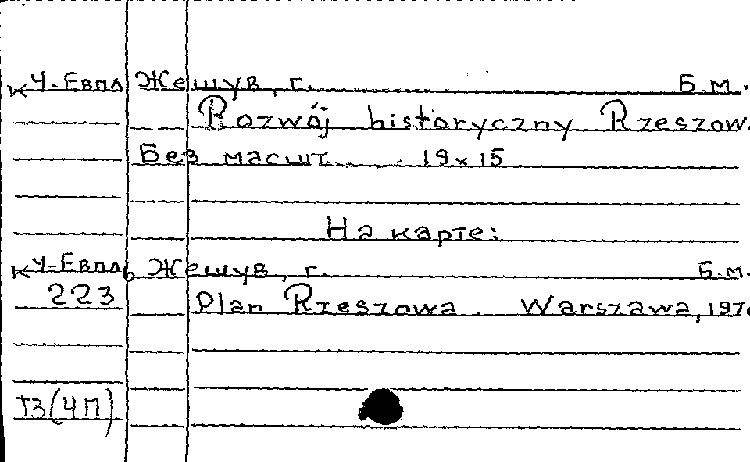 К У-Евпл Жешув, г. Б.м.
Rozwój historyczny Rzeszow
Без масшт. 19x15
На карте:
К У-Евпл Жешув, г. Б.м.
223 Plan Rzeszowa. Warszawa, 197
Т3(4П)